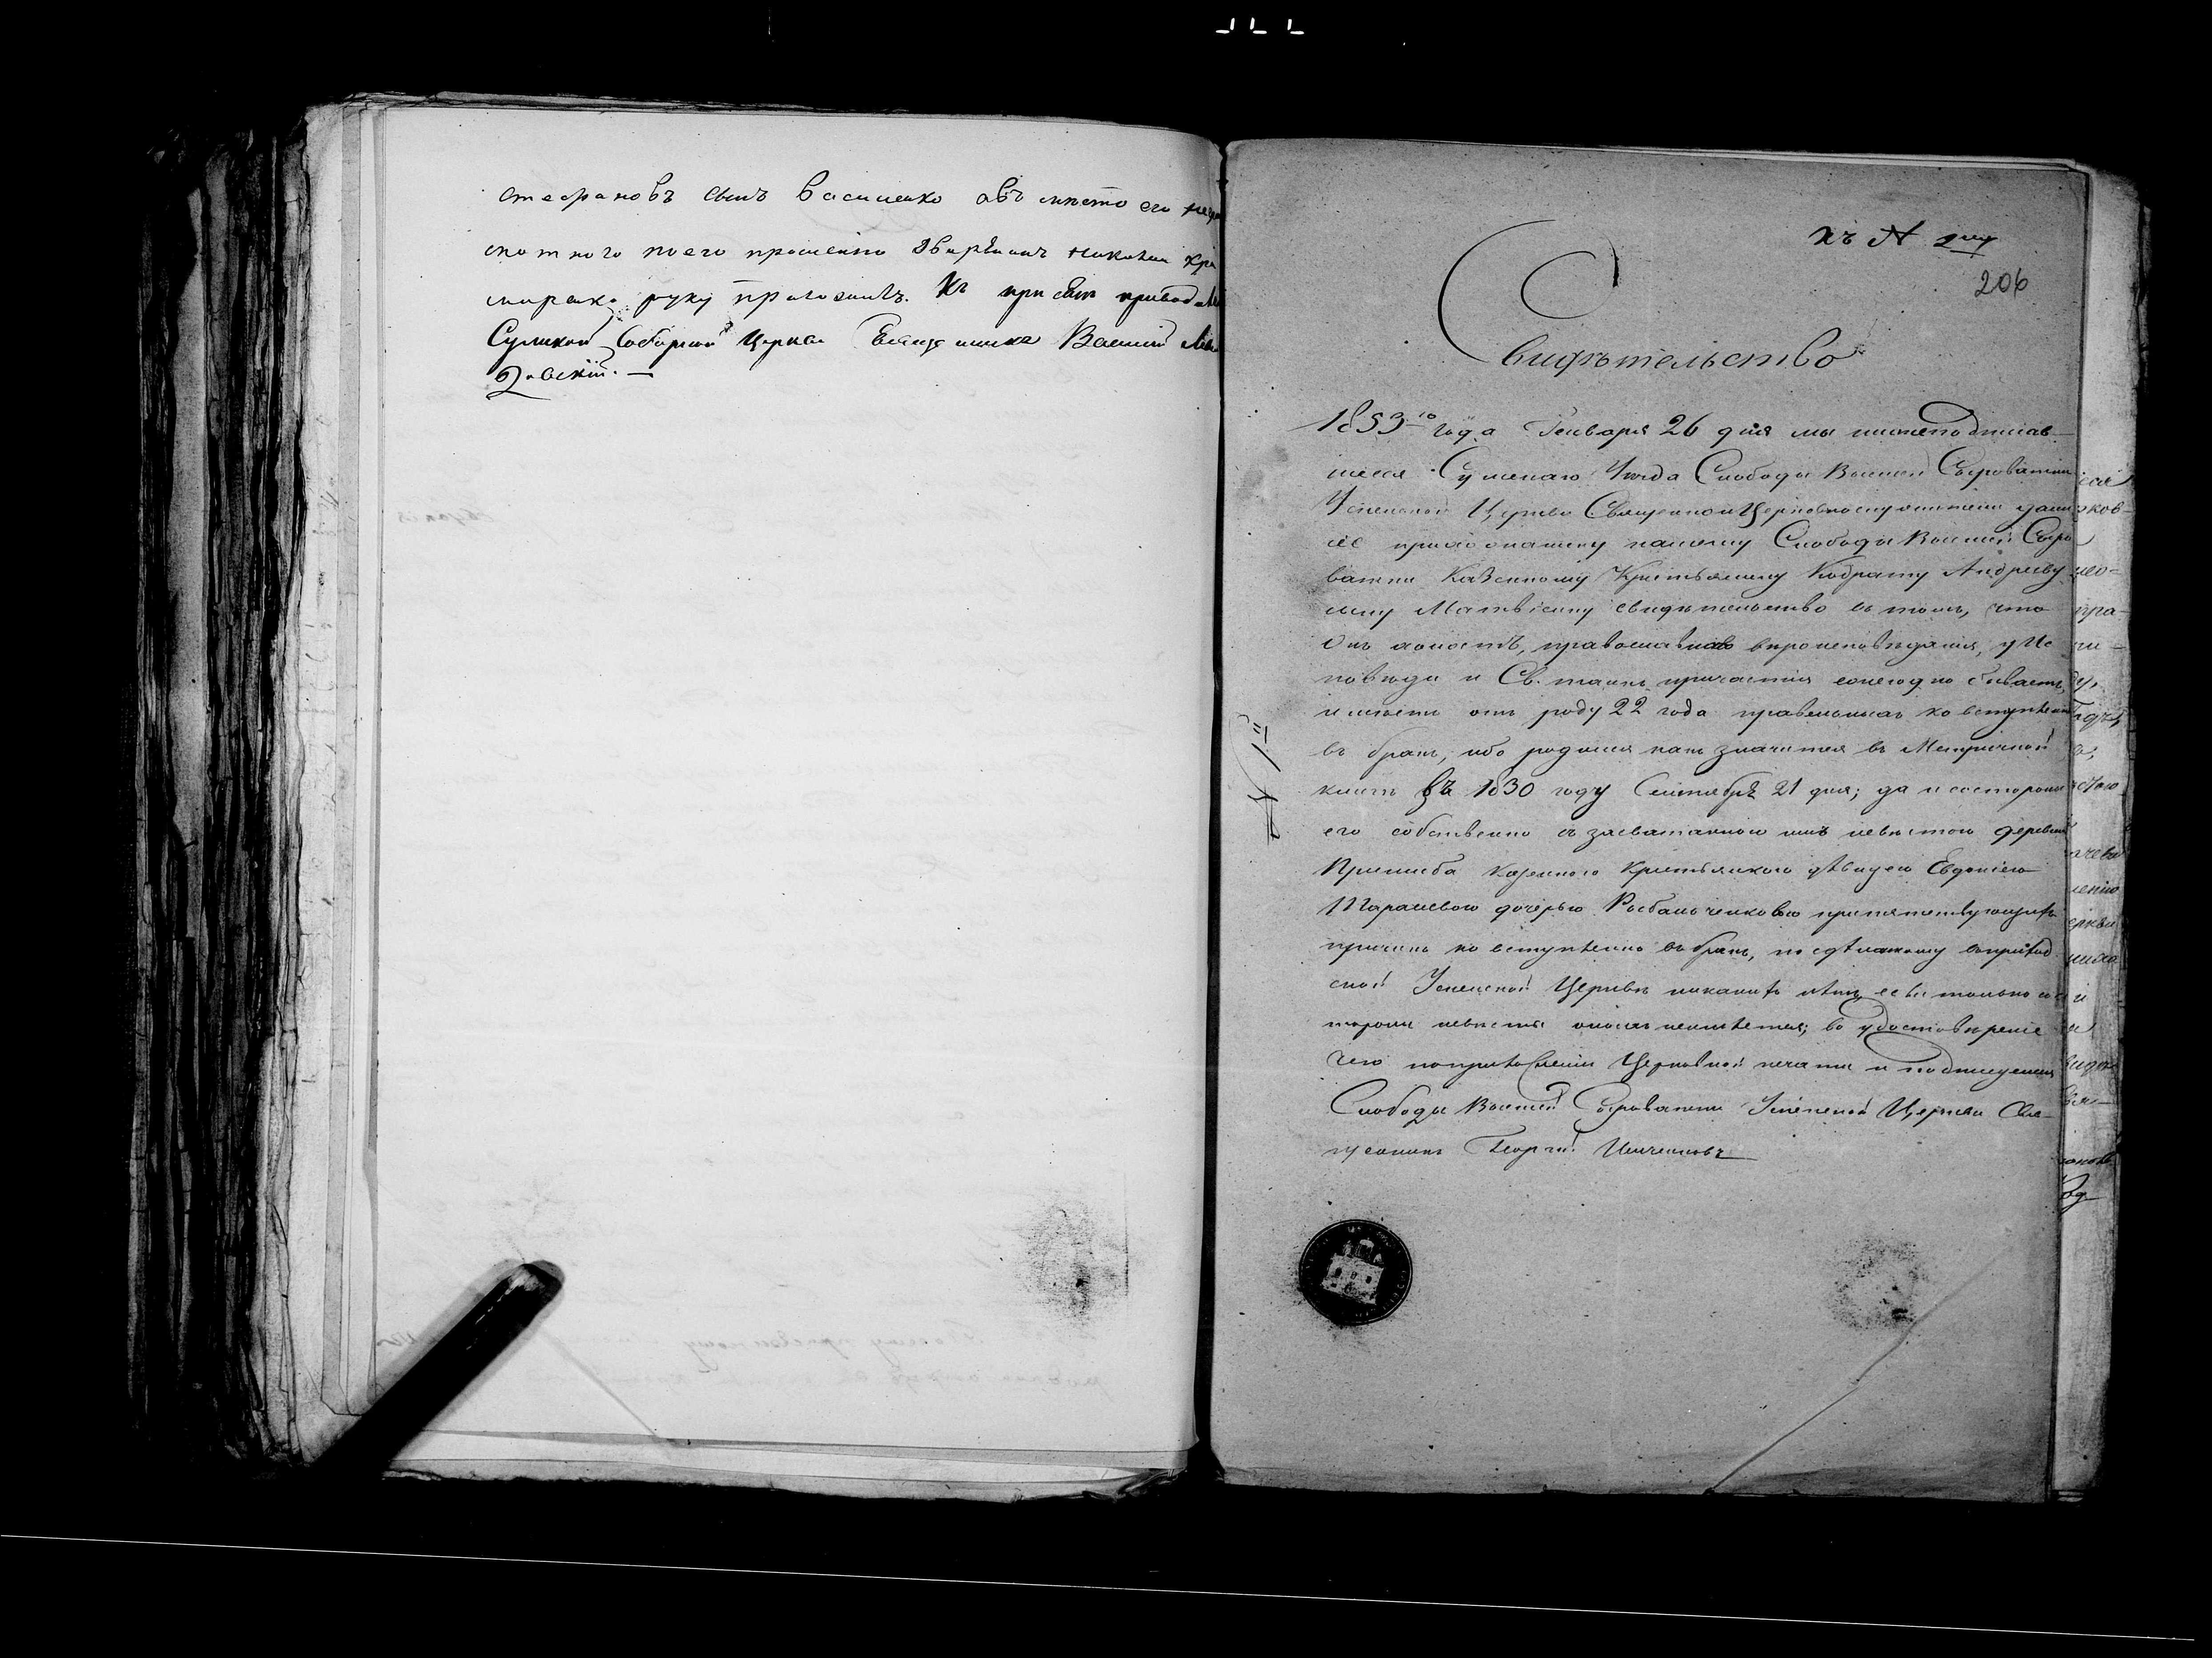 стефановъ сынъ Василенко авъ мѣсто его негра
мотного поего прошенію дворянинъ Николай Кра
марен руку приложилъ. Къ присягѣ приводилъ
Сумской Соборной Церкви Священникъ Василій
довскій. —
къ №
206
Свидѣтельство
1853го года Генваря 26 дня мы нижеподписав-
шеся Сумскаго Уезда Слободы Вышней Сыроватки
Успенской Церкви Священно и Церковнослужители дали
сіе прихожанину нашему Слободы Вышней Сыро
ватки Казенному Крестьянину Кодрату Андрееву
сыну Матвіенку свидѣтельство въ томъ, что
онъ холостъ, православнаго вѣроисповѣданія, у Ис
повѣди и Св. таинъ причастія ежегодно бываетъ,
имѣетъ отъ роду 22 года правильныхъ ко вступленію
въ бракъ, ибо родился какъ значится въ Метричной
книгѣ въ 1830 году Сентября 21 дня; да и состороны
его собственно съ засватанною имъ невѣстою деревни
Пришиба Казенного Крестьянского дѣвицею Евдокіею
дочерью препятствующихъ
причинъ ко вступленію въ бракъ, по сдѣланному въ приход
ской Успенской Церквѣ никакихъ нѣтъ, если только со с
тороны невѣсты оныхъ неимѣется; во удостовѣреніе
чего поприложеніи Церковной печати и подписуемся
Слободы Вышней Сыроватки Успенской Церкви Свя-
щенникъ Георгій
№ 1й